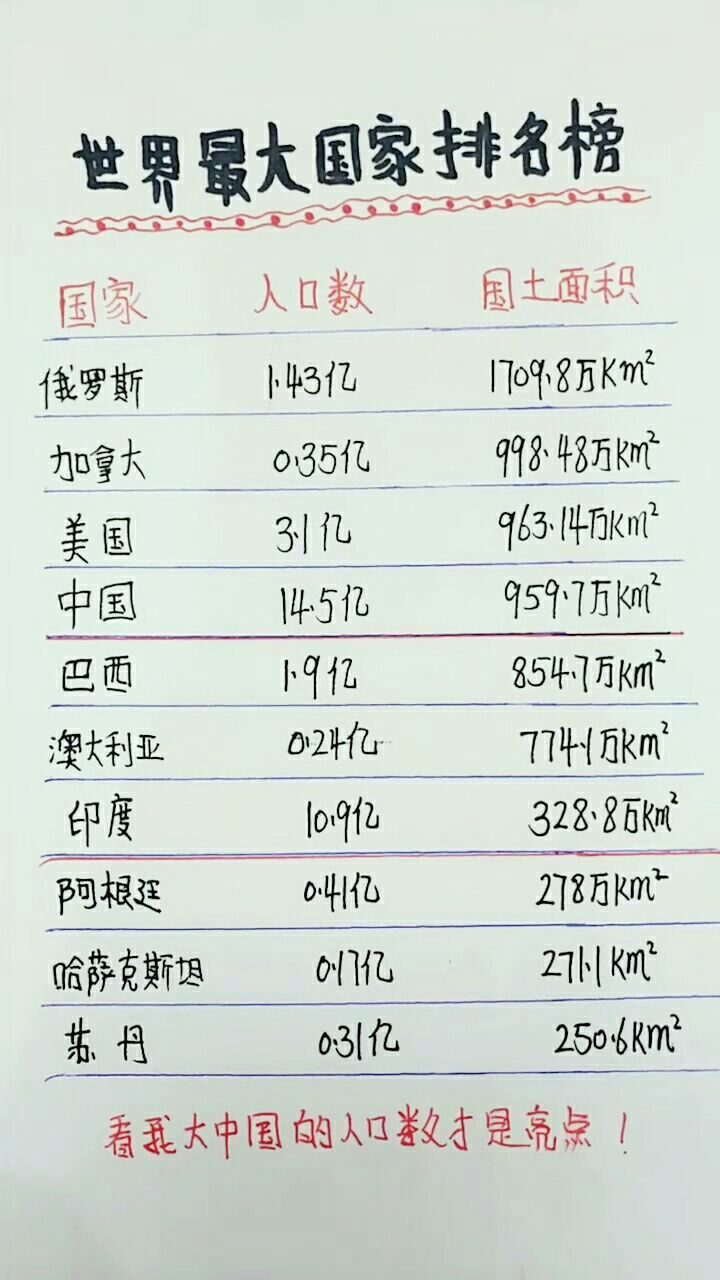 世界最大国家排名榜
国家 人口数 国土面积
俄罗斯 1.43亿 1709.8万Km²
加拿大 0.35亿 998.48万Km²
美国 3.1亿 963.14万Km²
中国 14.5亿 959.7万Km²
巴西 1.9亿 854.7万Km²
澳大利亚 0.24亿 774.1万Km²
印度 10.9亿 328.8万Km²
阿根廷 0.41亿 278万Km²
哈萨克斯坦 0.17亿 271.1Km²
苏丹 0.31亿 250.6Km²
看我大中国的人口数才是亮点！